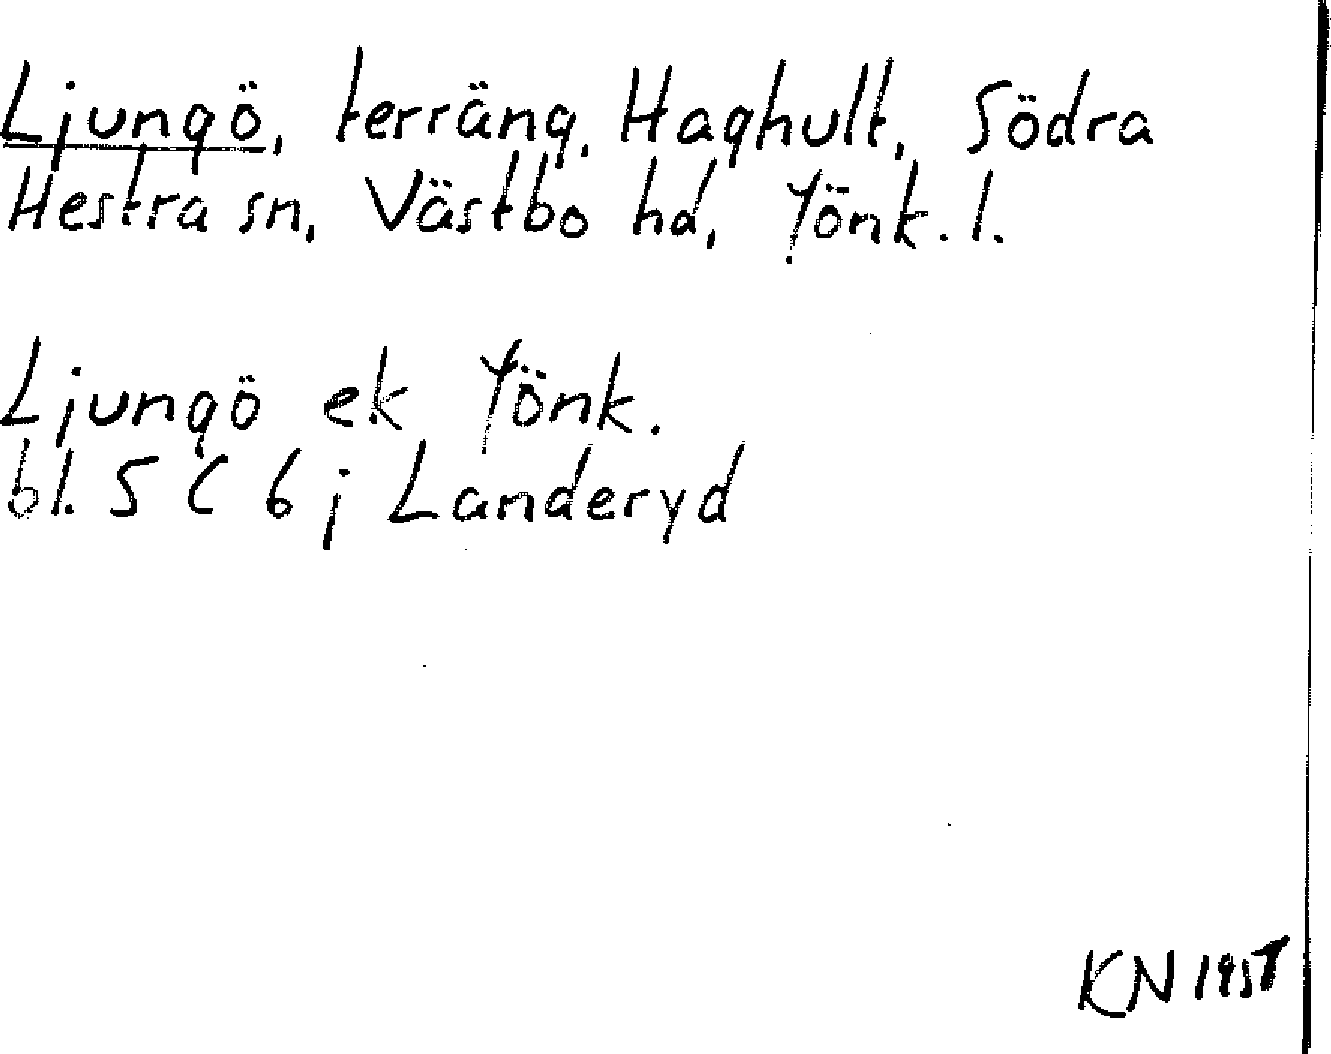 Ljungö, terräng, Haghult, Södra
Hestra sn, Västbo hd, Jönk. l.
Ljungö ek Jönk.
bl. 5 C 6 j Landeryd
KN